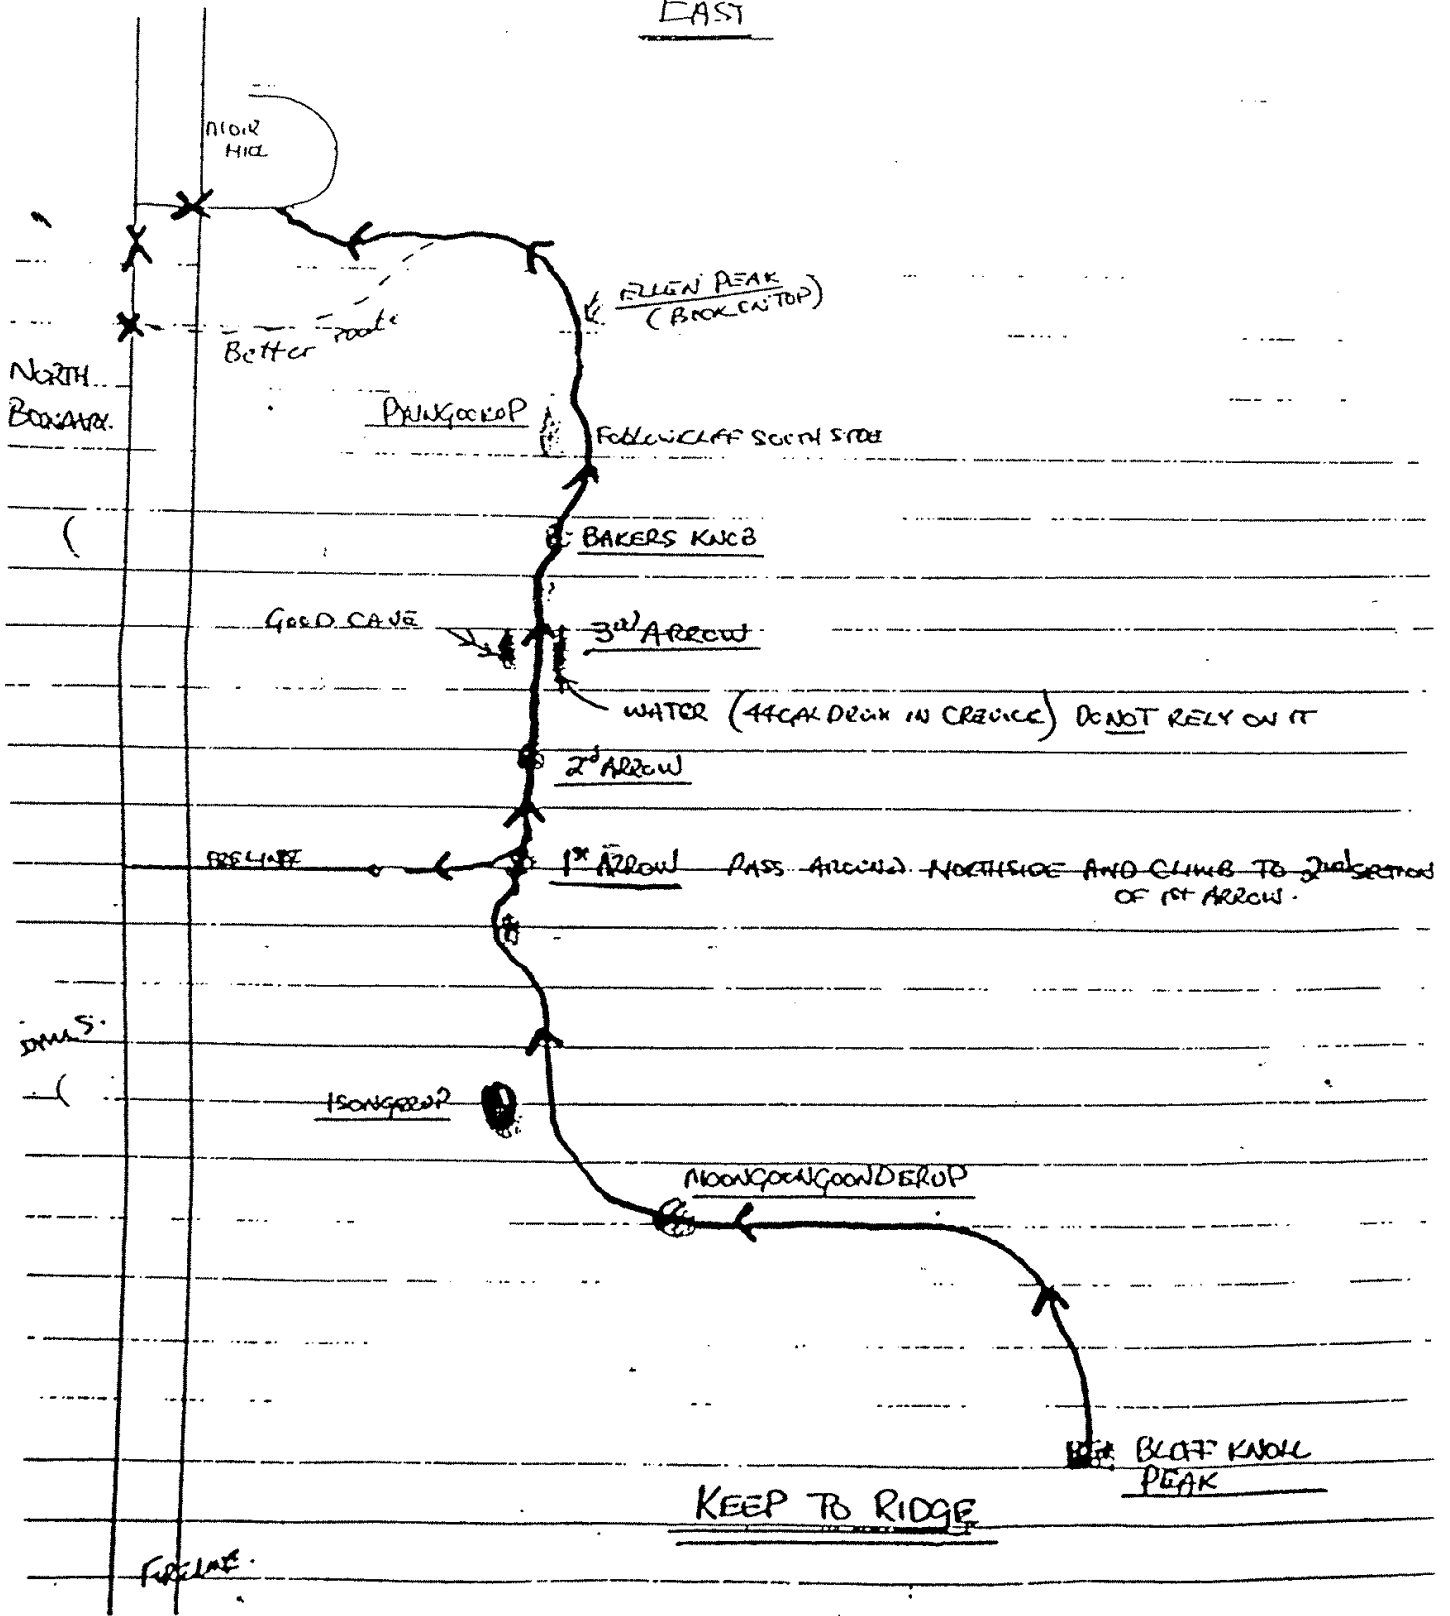 EAST
MOIR
HILL
ELLEN PEAK
(BROKEN TOP)
Better route
NORTH
BOUNDARY.
PYUNGOORUP
FOLLOW CLIFF SOUTH SIDE
BAKERS KNOB
GOOD CAVE
3rd ARROW
WATER (44GAL DRUM IN CREVICE) DO NOT RELY ON IT
2d ARROW
FIRELINE
1st ARROW PASS AROUND NORTHSIDE AND CLIMB TO 2nd SECTION
OF 1st ARROW.
ISONGERUP
MOONGOONGOONDERUP
BLUFF KNOLL
PEAK
KEEP TO RIDGE
FIRELINE.